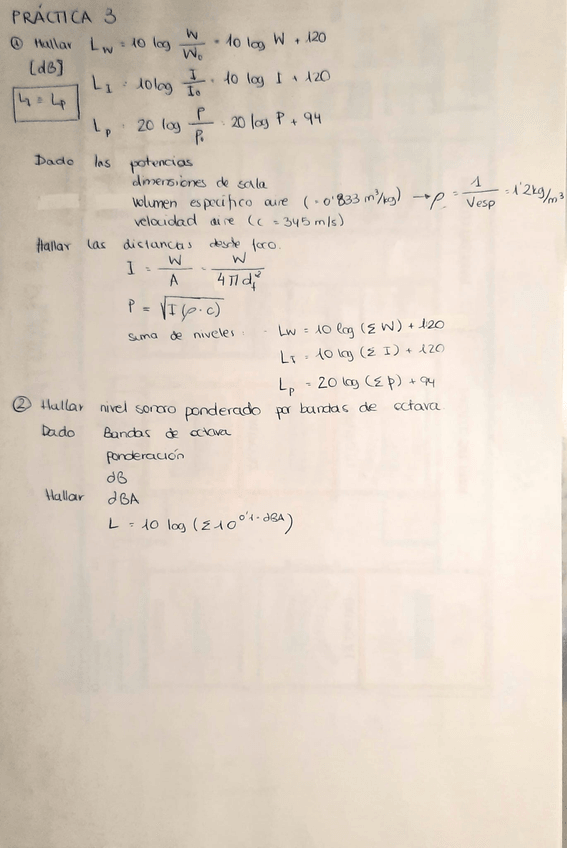 PRÁCTICA 3
① Hallar L_W = 10 log W/W₀ = 10 log W + 120
[dB] L_I = 10 log I/I₀ = 10 log I + 120
L_I = L_p
L_p = 20 log P/P₀ = 20 log P + 94
Dado las potencias
dimensiones de sala
volumen específico aire (= 0'833 m³/kg) → ρ = 1/Vesp = 1'2 kg/m³
velocidad aire (c = 345 m/s)
Hallar las distancias desde foco.
I = W/A = W/4πd_f²
P = √I(ρ·c)
suma de niveles: - LW = 10 log (Σ W) + 120
L_I = 10 log (Σ I) + 120
L_p = 20 log (Σ p) + 94
② Hallar nivel sonoro ponderado por bandas de octava.
Dado Bandas de octava
ponderación
dB
Hallar dBA
L = 10 log (Σ 10^0'1·dBA)